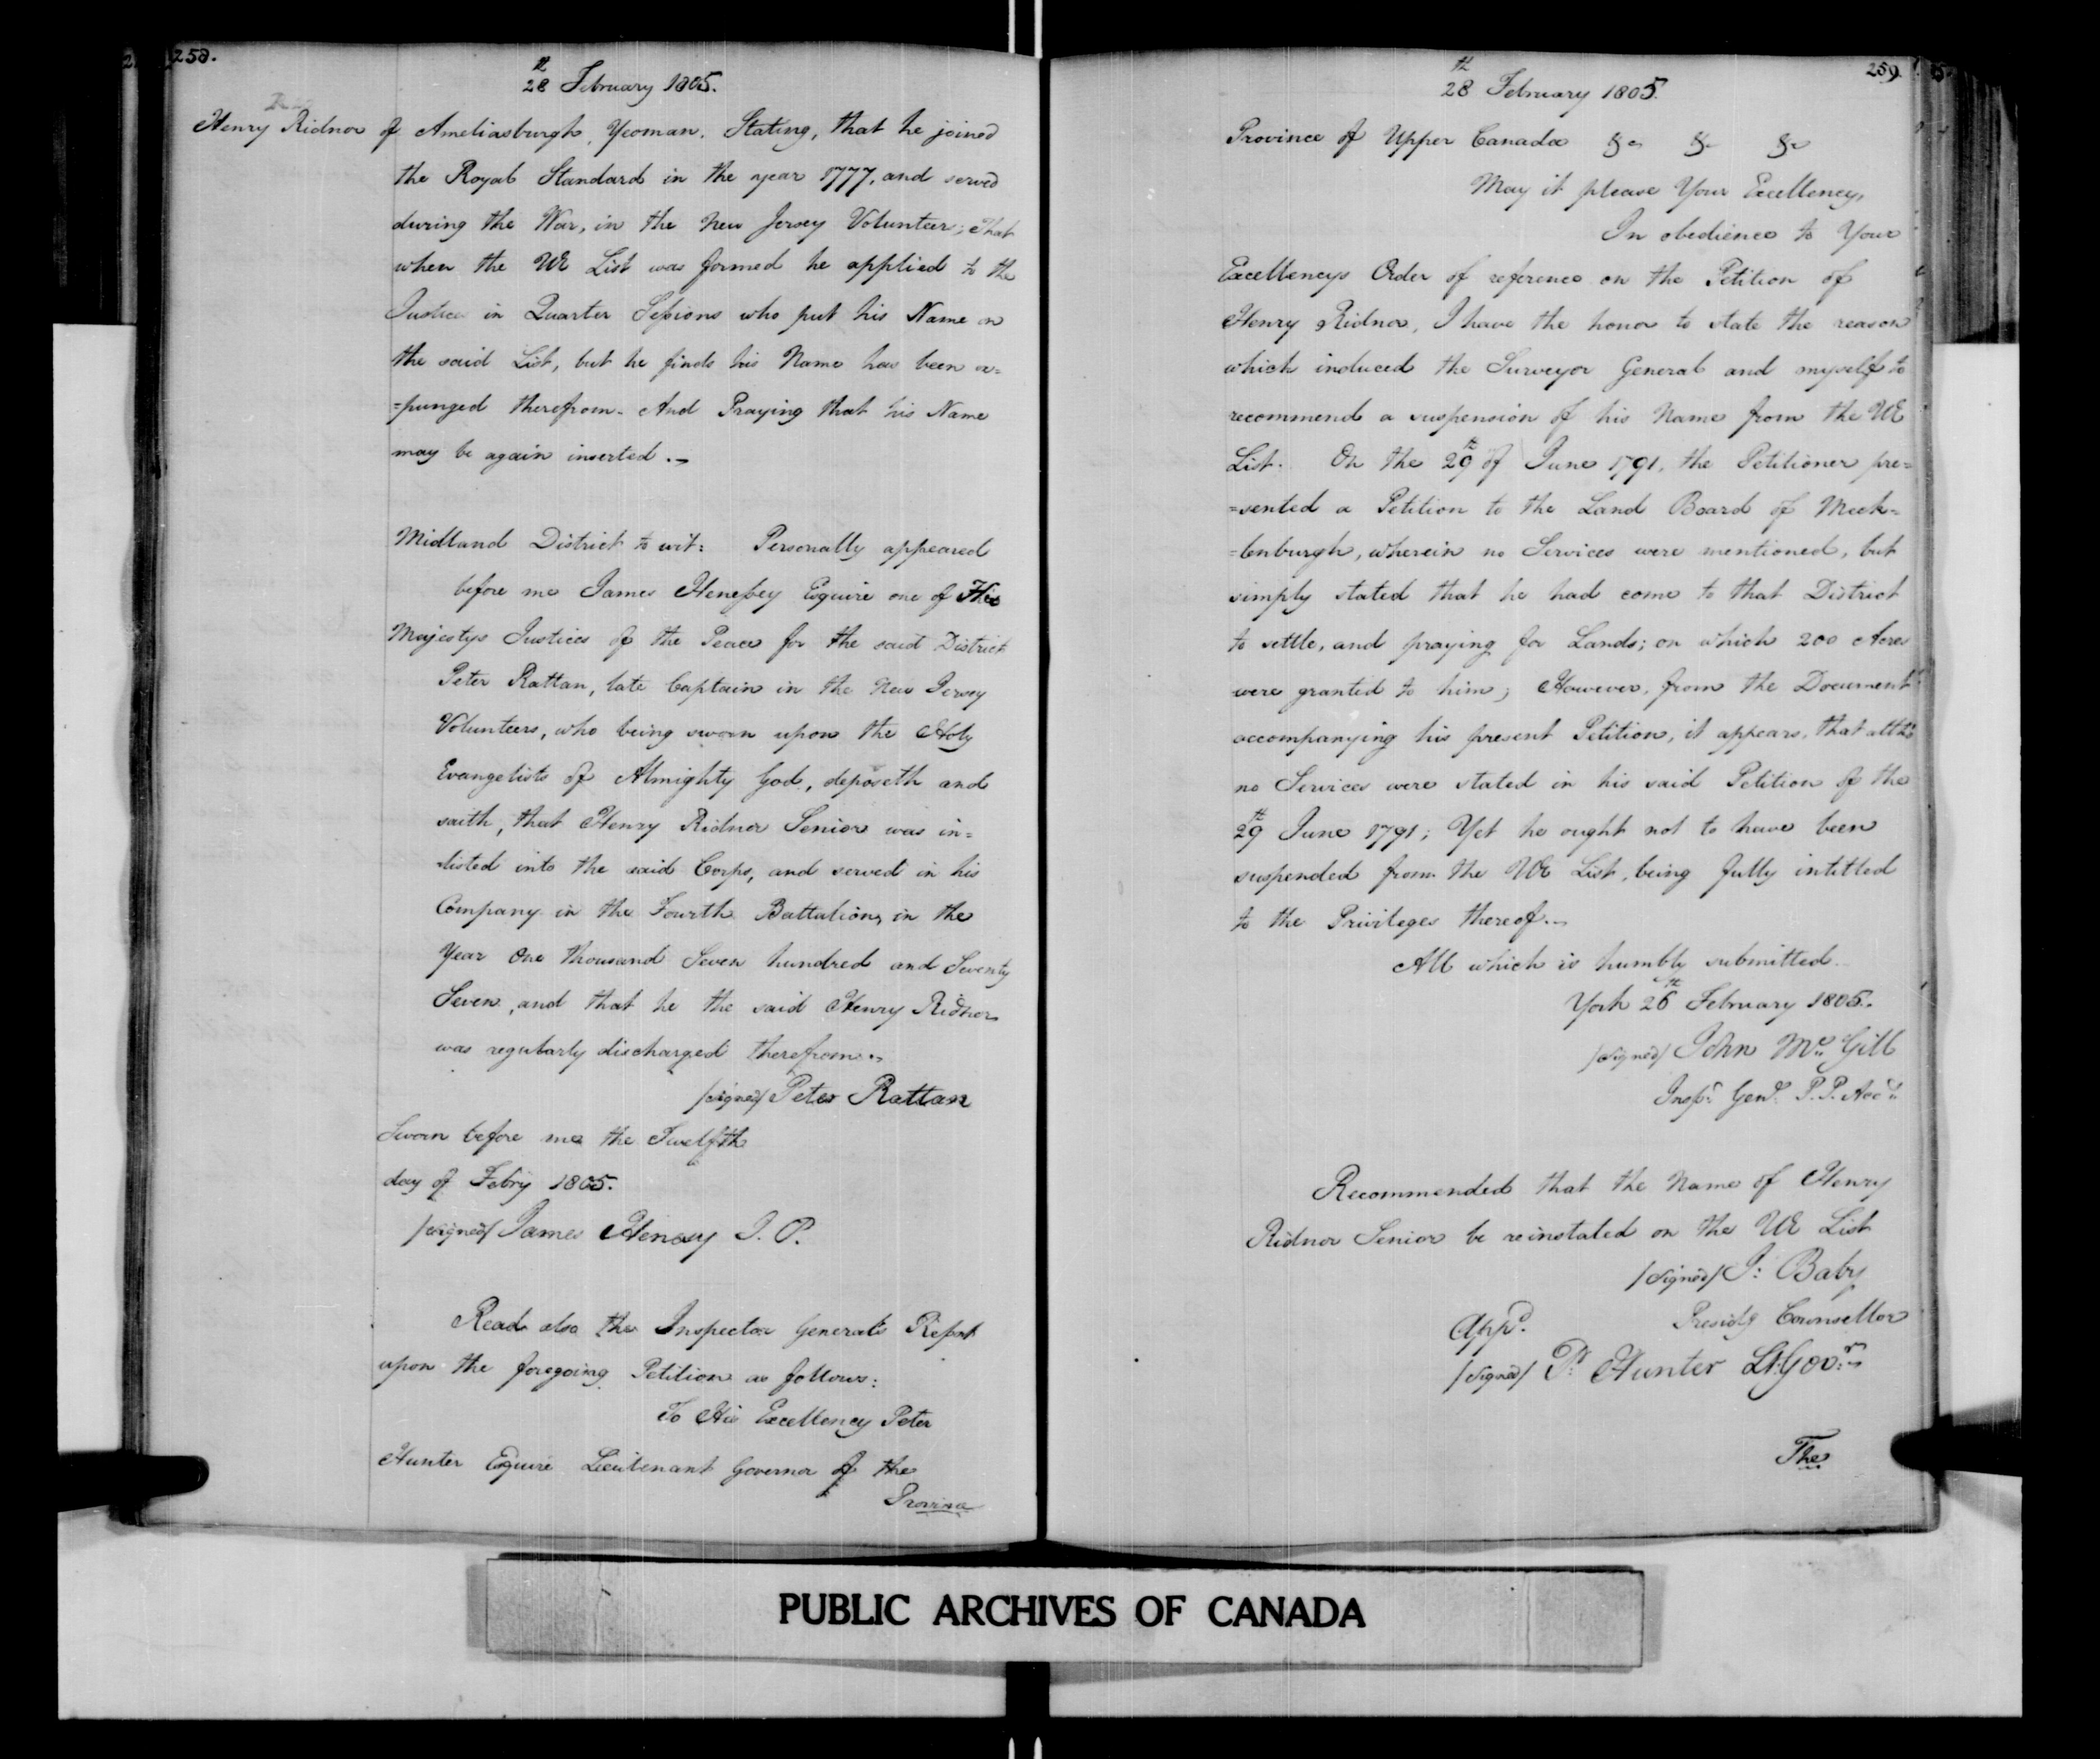 258.
28th February 1805.
Henry Ridnor of Ameliasburgh, Yeoman. Stating, that he joined
the Royal Standard in the year 1777, and served
during the War, in the New Jersey Volunteers; That
when the UE List was formed he applied to the
Justices in Quarter Sessions who put his Name on
the said List, but he finds his Name has been ex=
=punged therefrom. And Praying that his Name
may be again inserted.
Midland District to wit: Personally appeared
before me James Henessey Esquire one of His
Majestys Justices of the Peace for the said District
Peter Rattan, late Captain in the New Jersey
Volunteers, who being sworn upon the Holy
Evangelists of Almighty God, deposeth and
saith, that Henry Ridner Senior was in=
listed into the said Corps, and served in his
Company in the Fourth Battalion, in the
Year One thousand Seven hundred and Seventy
Seven, and that he the said Henry Ridnor
was regularly discharged therefrom.
/signed/ Peter Rattan
Sworn before me the Twelfth
day of Febry 1805.
/signed/ James Henesy J. P.
Read also the Inspector General's Report
upon the foregoing Petition as follows:
To His Excellency Peter
Hunter Esquire Lieutenant Governor of the
Province
259
28th February 1805.
Province of Upper Canada &c &c &c
May it please Your Excellency,
In obedience to Your
Excellencys Order of reference on the Petition of
Henry Ridnor, I have the honor to state the reason
which induced the Surveyor General and myself to
recommend a suspension of his Name from the UE
List. On the 29th of June 1791, the Petitioner pre=
=sented a Petition to the Land Board of Meck=
=lenburgh, wherein no Services were mentioned, but
simply stated that he had come to that District
to settle, and praying for Lands; on which 200 Acres
were granted to him; However, from the Document
accompanying his present Petition, it appears, that altho
no Services were stated in his said Petition of the
29th June 1791; Yet he ought not to have been
suspended from the UE List, being fully intitled
to the Privileges thereof.
All which is humbly submitted.
York 26th February 1805.
/signed/ John McGill
Inspr. Genl. P. P. Accts.
Recommended that the Name of Henry
Ridnor Senior be reinstated on the UE List
/signed/ J: Baby
Presidg Counsellor
Appd.
/signed/ P: Hunter Lt: Govr.
The
PUBLIC ARCHIVES OF CANADA